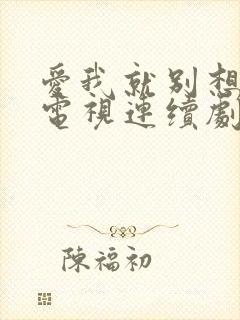 愛我就別想
電視連續劇
陳福初